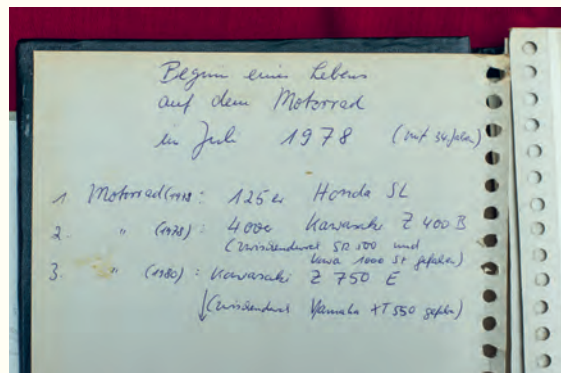 Beginn eines Lebens
auf dem Motorrad
im Juli 1978 (mit 34 Jahren)
1. Motorrad (1978: 125er Honda SL
2. " (1978): 400er Kawasaki Z 400 B
(zwischendurch SR 500 und
Kawa 1000 St gefahren)
3. " (1980): Kawasaki Z 750 E
(zwischendurch Yamaha XT 550 gefahren)